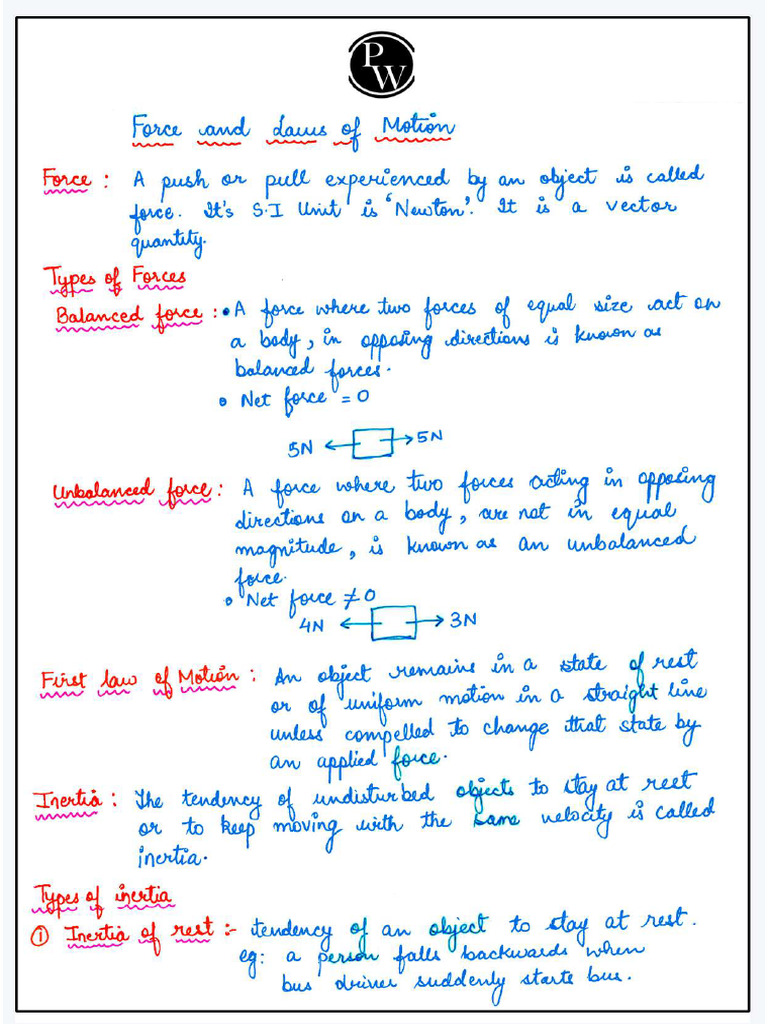 PW
Force and Laws of Motion
Force : A push or pull experienced by an object is called
force. It's S.I Unit is 'Newton'. It is a vector
quantity.
Types of Forces
Balanced force : • A force where two forces of equal size act on
a body, in opposing directions is known as
balanced forces.
• Net force = 0
5N 5N
Unbalanced force : A force where two forces acting in opposing
directions on a body, are not in equal
magnitude, is known as an unbalanced
force.
• Net force ≠ 0
4N 3N
First law of Motion : An object remains in a state of rest
or of uniform motion in a straight line
unless compelled to change that state by
an applied force.
Inertia : The tendency of undisturbed objects to stay at rest
or to keep moving with the same velocity is called
inertia.
Types of inertia
① Inertia of rest :- tendency of an object to stay at rest.
eg: a person falls backwards when
bus driver suddenly starts bus.